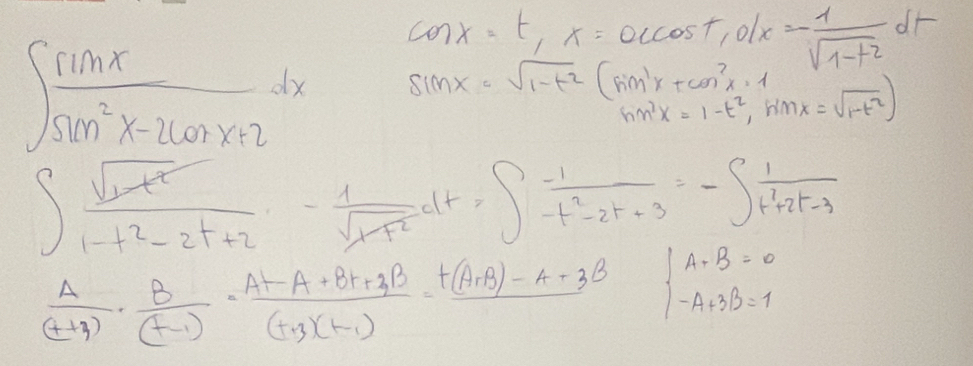 ∫ sin x / (sin² x - 2cos x + 2) dx
cos x = t, x = arccos t, dx = - 1/√(1-t²) dt
sin x = √(1-t²) (sin²x + cos²x = 1
sin²x = 1-t², sin x = √(1-t²))
∫ √(1-t²) / (1-t²-2t+2) · - 1/√(1-t²) dt = ∫ -1/(-t²-2t+3) = - ∫ 1/(t²+2t-3)
A/(t+3) + B/(t-1) = (At-A+Bt+3B)/((t+3)(t-1)) = t(A+B) - A + 3B
{ A+B = 0
-A+3B = 1